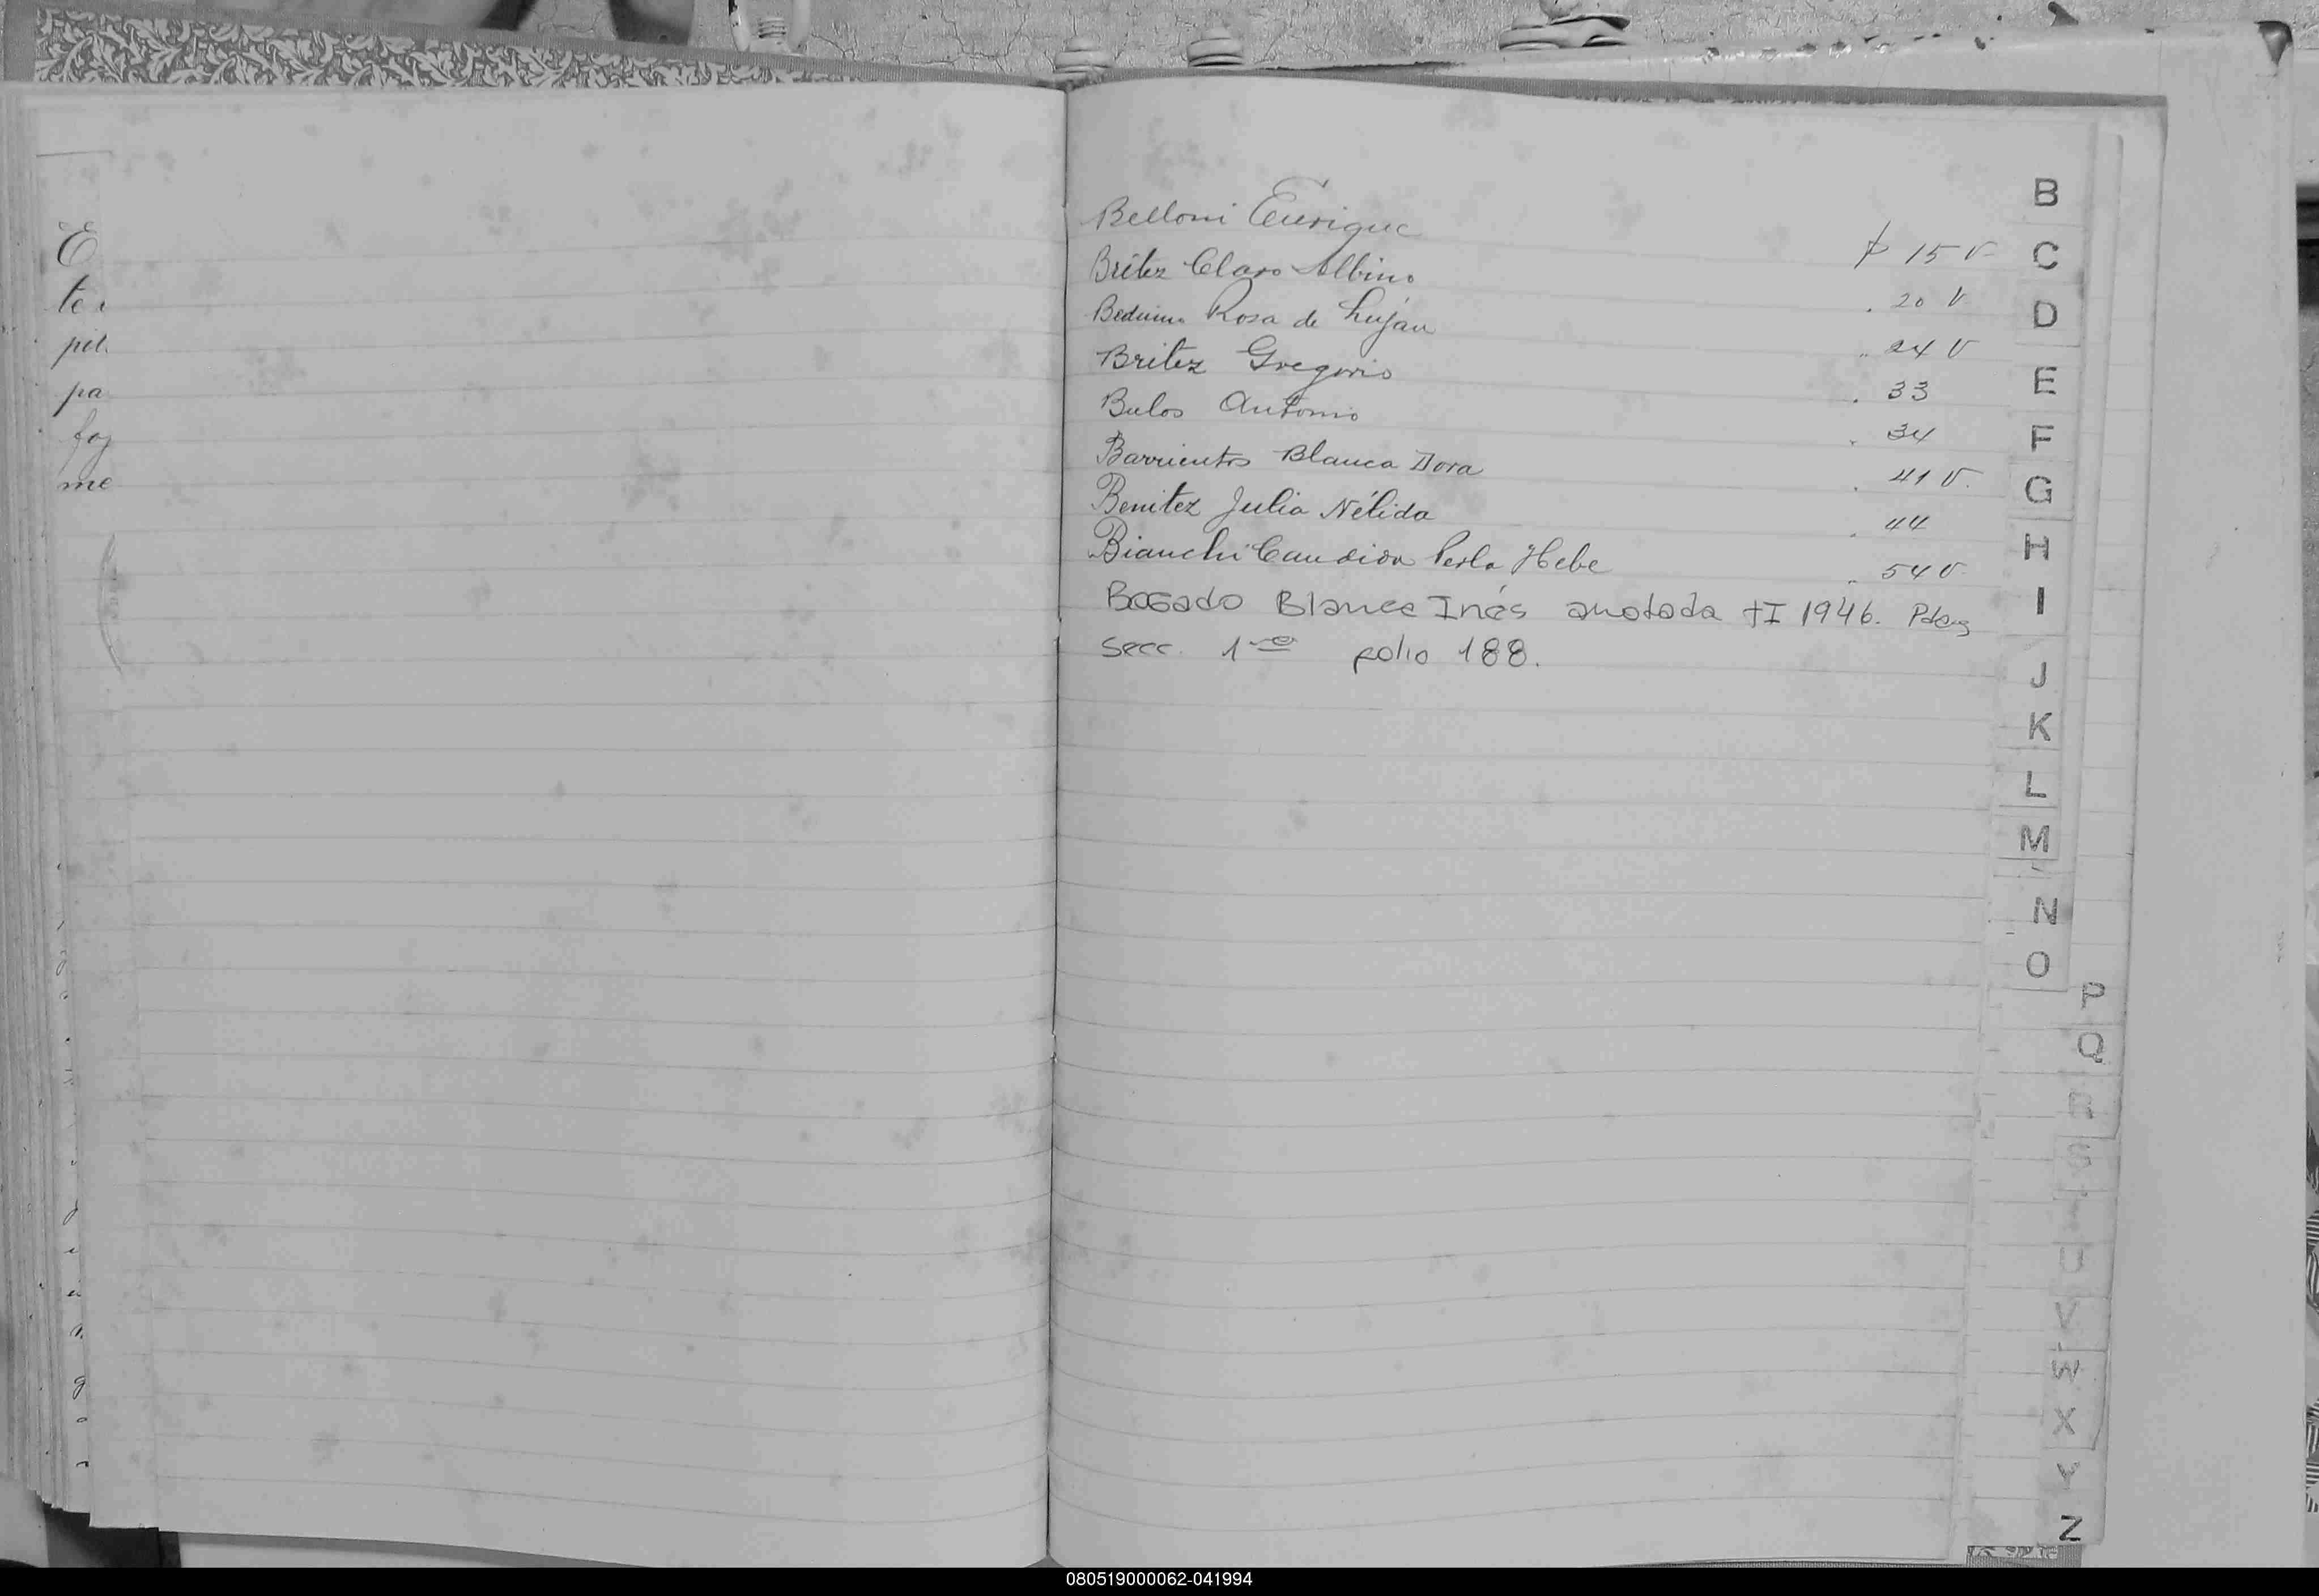 E
te
pit
pa
foj
me
Belloni Enrique p 15 v
Brítez Claro Albino . 20 V
Rosa de Luján " 24 V
Britez Gregorio . 33
Bulos Antonio . 34
Barrientos Blanca Dora . 41 V.
Benitez Julia Nélida . 44
Bianchi Candida Perla Hebe " 54 V
Bogado Blanca Inés anotada tI 1946. Pdas
secc. 1ra folio 188.
B
C
D
E
F
G
H
I
J
K
L
M
N
O
P
Q
R
S
T
U
V
W
X
Y
Z
080519000062-041994